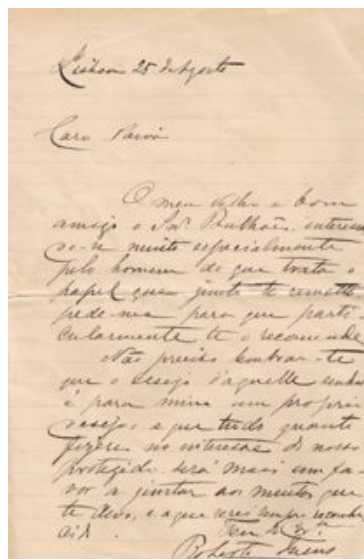 Lisboa 25 de Agosto
Caro Paiva
O meu velho e bom
amigo o Snr. Bulhões, interes
sa-se muito especialmente
pelo homem de que trata o
papel que junto te remetto
pede-me para que parti-
cularmente te o recomende
Não preciso lembrar-te
que o desejo d'aquelle
é para mim um proprio
desejo, e que tudo quanto
fizeres no interesse do nosso
protegido será mais um fa-
vor a juntar aos muitos que
te devo, e a que
Teu
Roberto